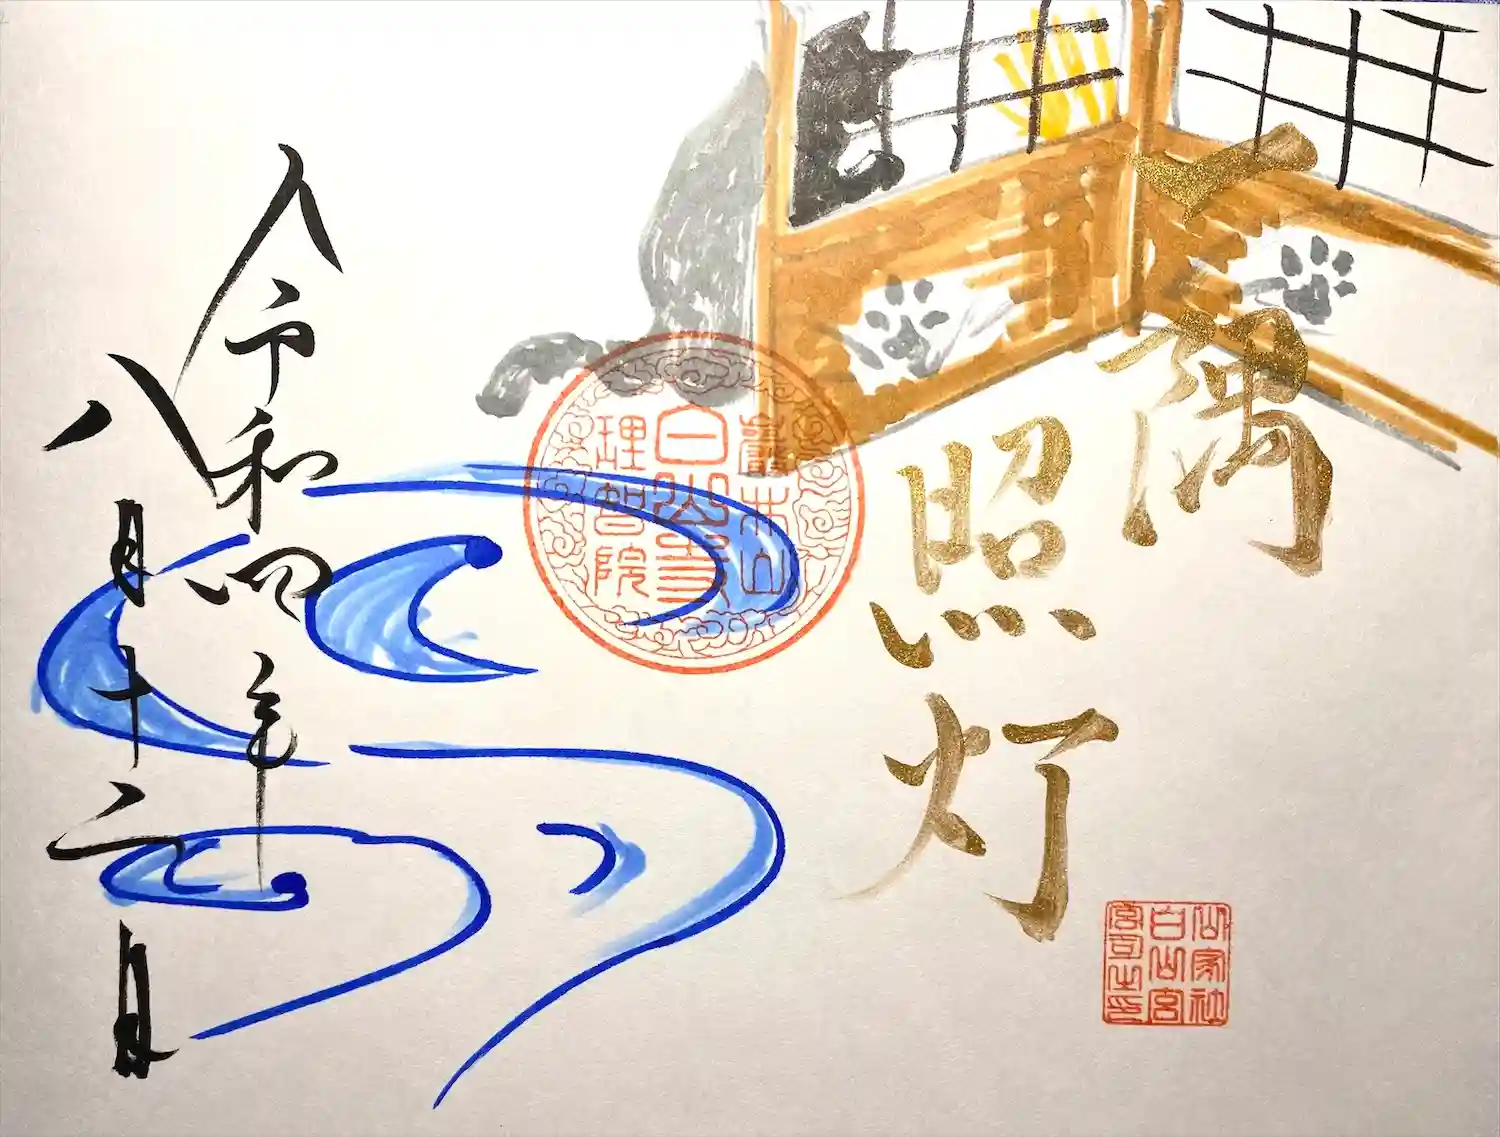 一隅
照灯
令和四年
八月十 日
白山寺
理智院
白山宮
宮司之印